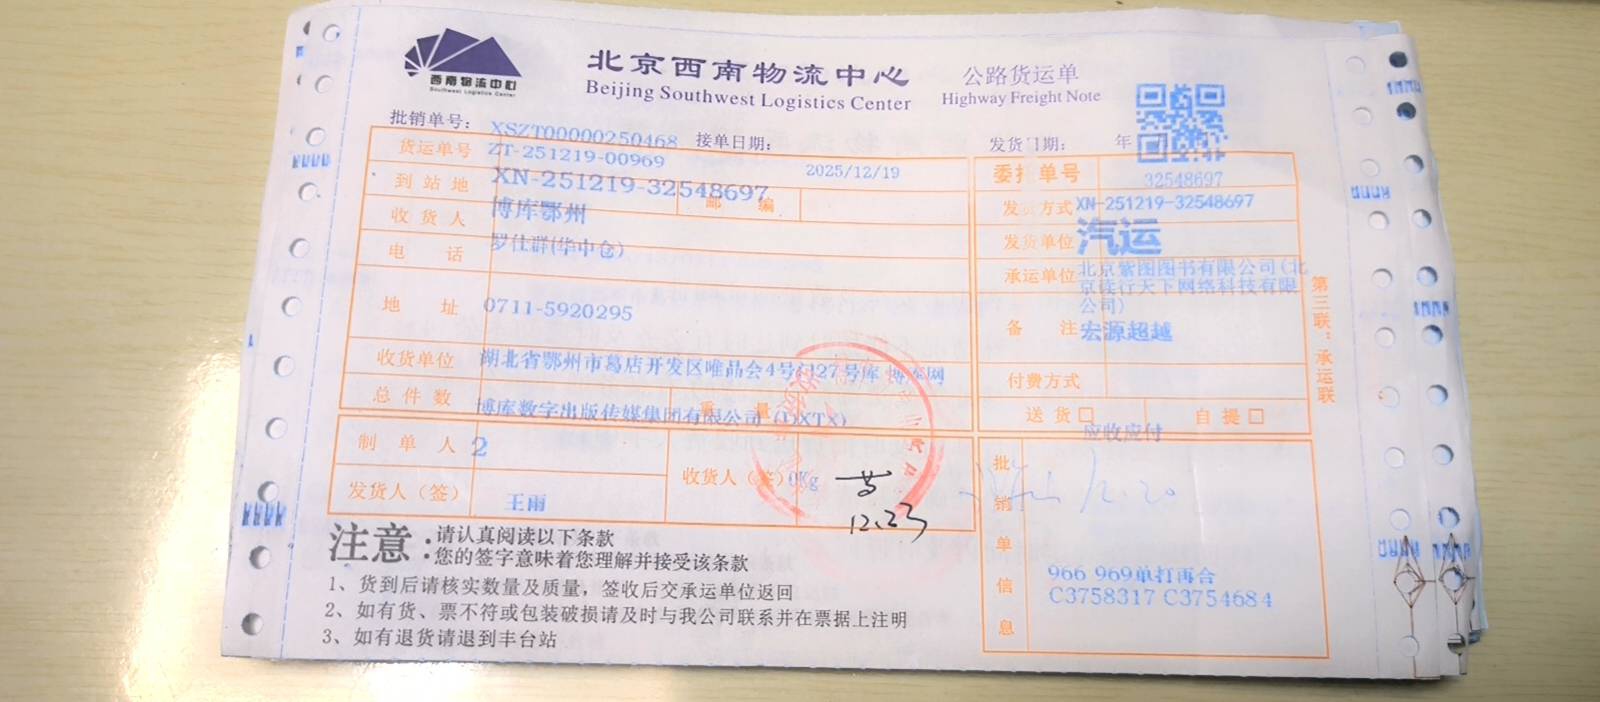 西南物流中心
Southwest Logistics Center
北京西南物流中心
Beijing Southwest Logistics Center
公路货运单
Highway Freight Note
批销单号: XSZT00000250468 接单日期: 发货日期: 年
货运单号 ZT-251219-00969 2025/12/19
到站地 XN-251219-32548697 邮编
收货人 博库鄂州
电话 罗仕群(华中仓)
地址 0711-5920295
收货单位 湖北省鄂州市葛店开发区唯品会4号门27号库 博库网
总件数 博库数字出版传媒集团有限公司 重量
制单人 2
发货人(签) 王雨
收货人(签) 0Kg
12.23
委托单号 32548697
发货方式 XN-251219-32548697
发货单位 汽运
承运单位 北京紫图图书有限公司(北
京读行天下网络科技有限
公司)
备注 宏源超越
付费方式
送货□ 自提□
应收应付
批销单信息
12.20
966 969单打再合
C3758317 C3754684
第三联:承运联
注意:请认真阅读以下条款
您的签字意味着您理解并接受该条款
1、货到后请核实数量及质量，签收后交承运单位返回
2、如有货、票不符或包装破损请及时与我公司联系并在票据上注明
3、如有退货请退到丰台站